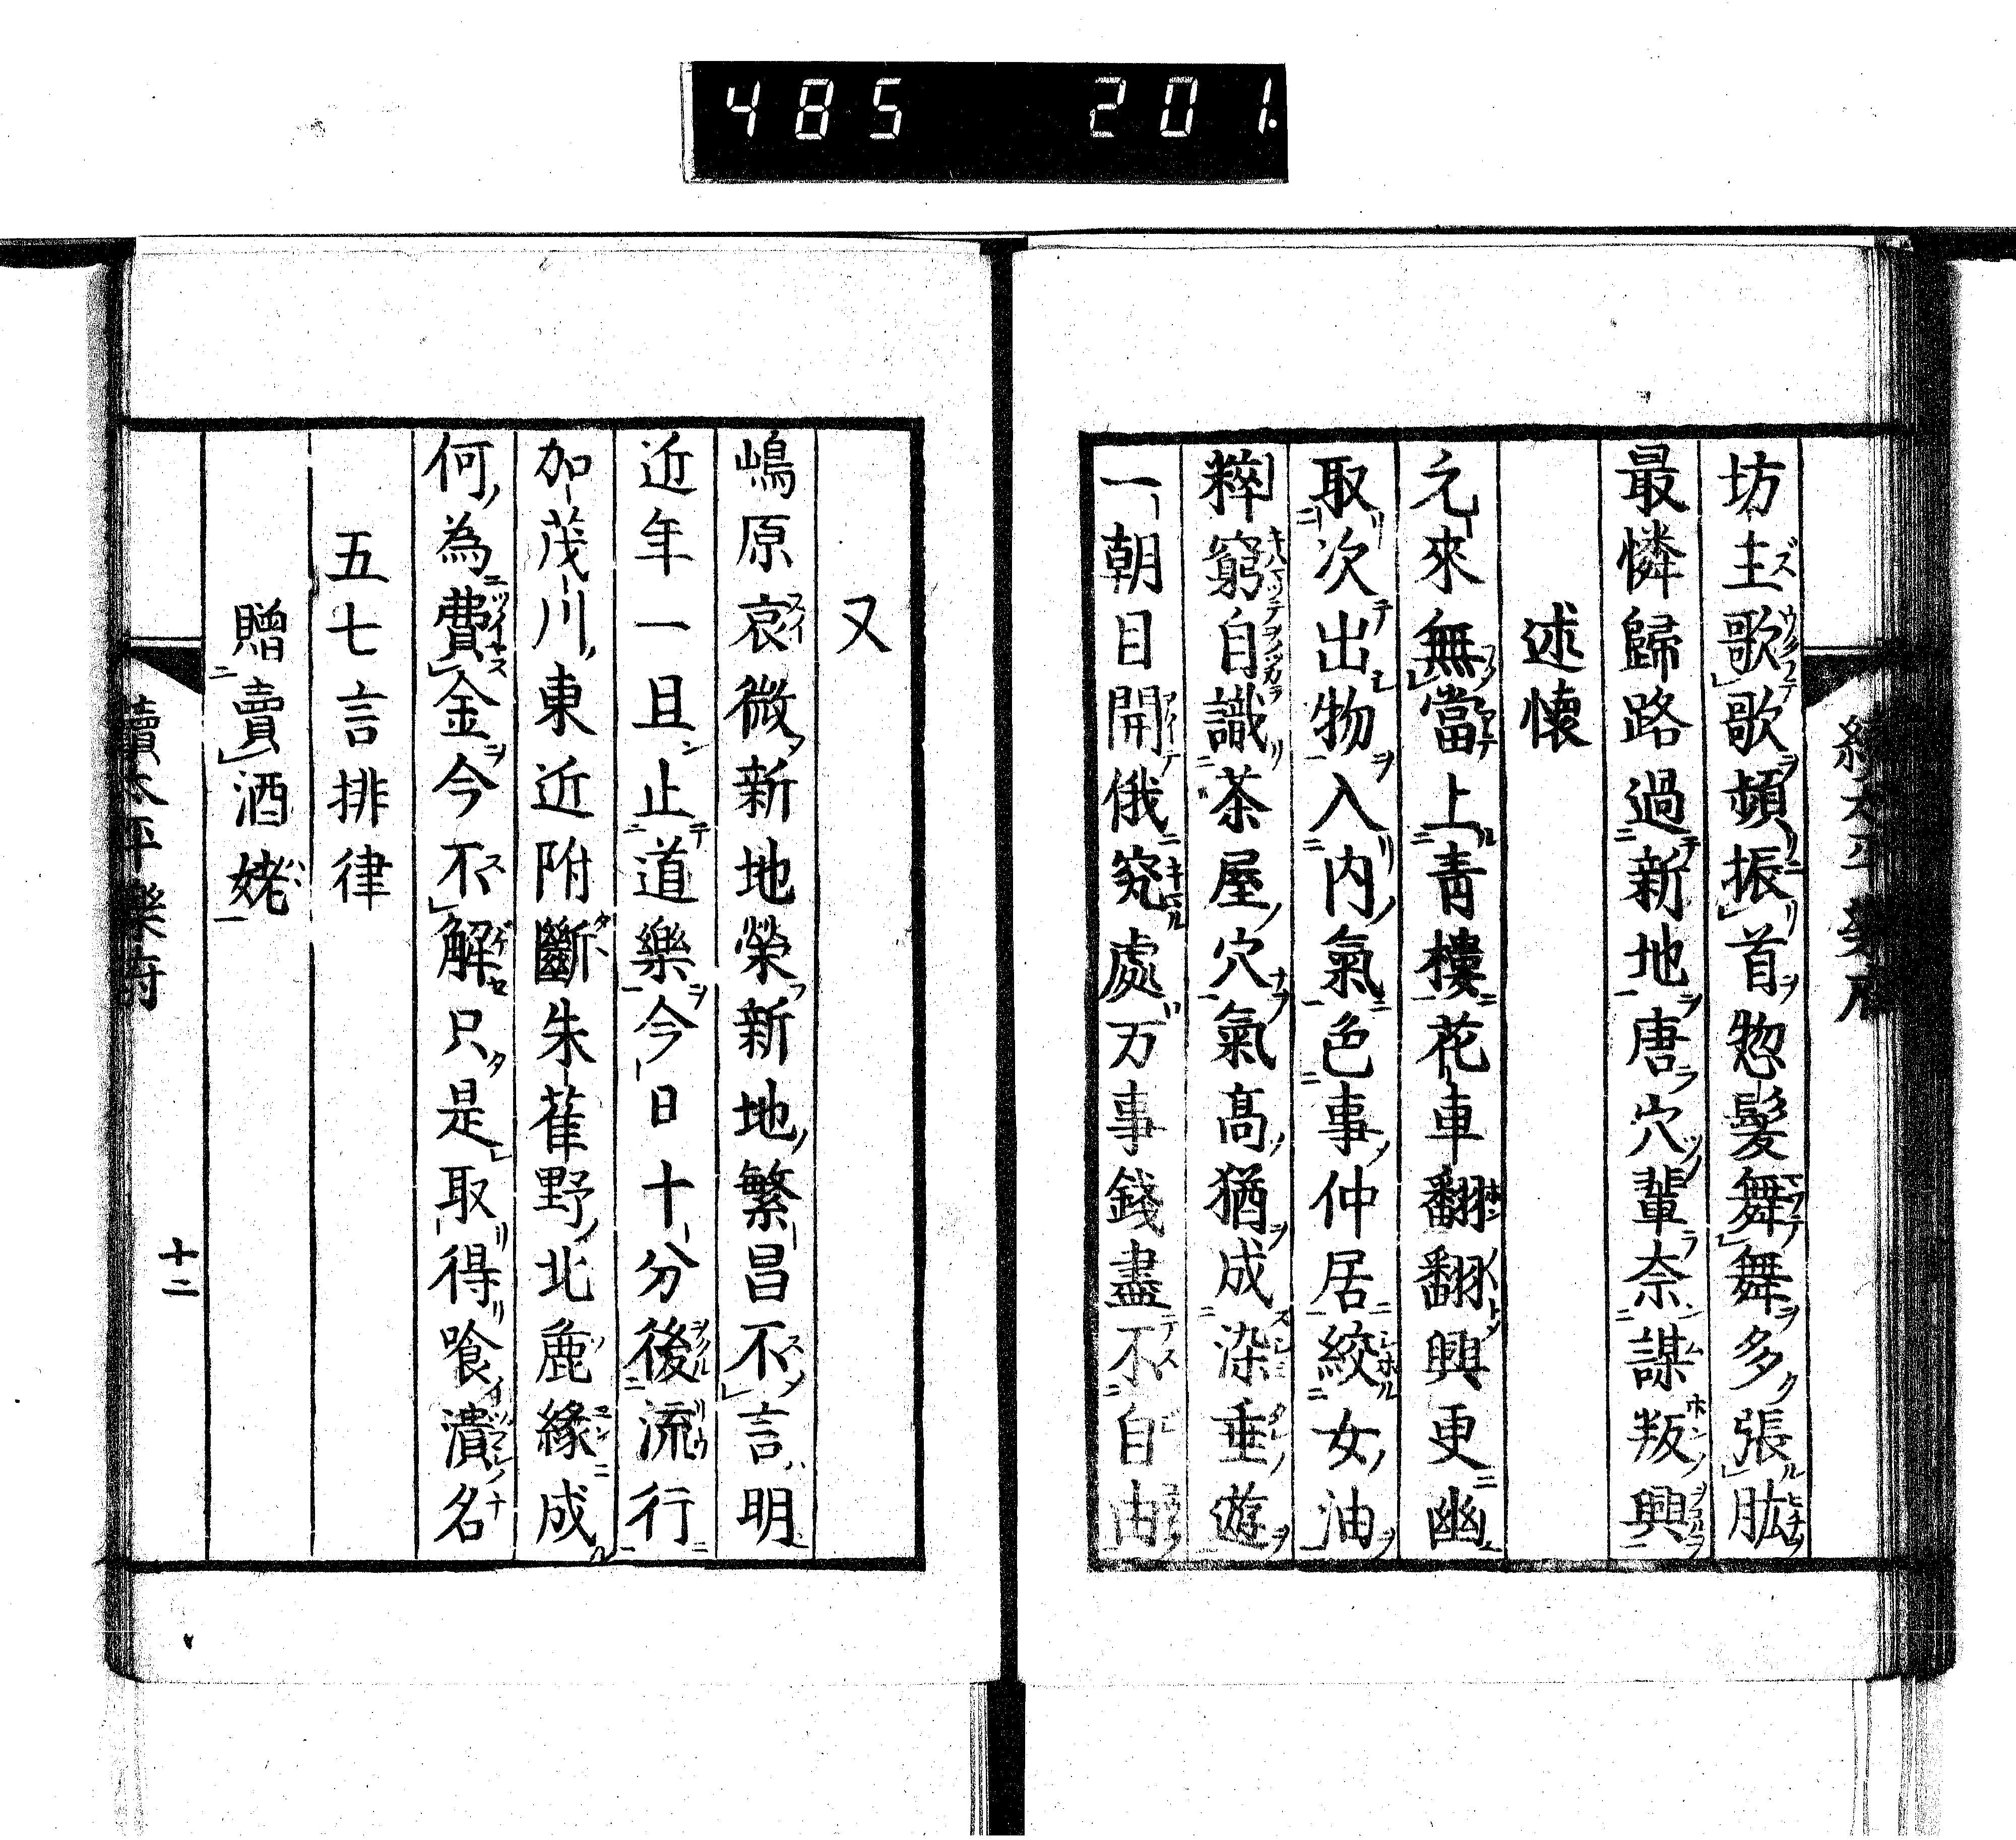 485 201.
坊主歌歌頻振首惣髮舞舞多張肱
最憐歸路過新地唐穴輩奈謀叛興
述懷
元來無當上青樓花車翻翻興更幽
取次出物入内氣色事仲居絞女油
粹窮自識茶屋穴氣高猶成染垂遊
一朝目開俄究處万事錢盡不自由
又
嶋原哀微新地榮新地繁昌不言明
近年一且止道樂今日十分後流行
加茂川東近附斷朱雀野北鹿緣成
何為費金今不解只是取得喰潰名
五七言排律
贈賣酒姥
十二